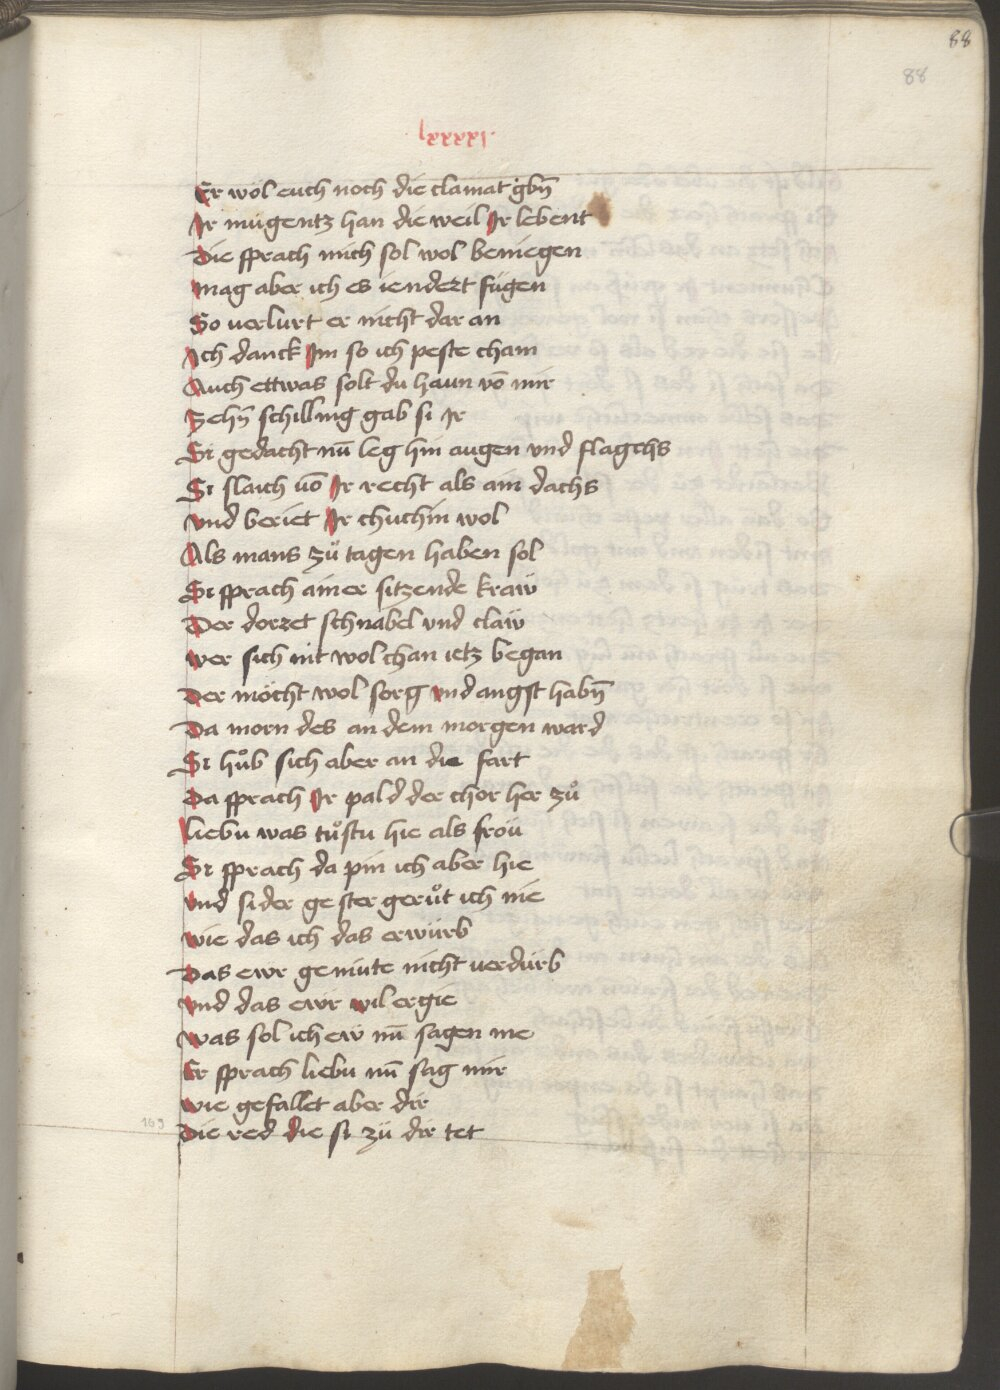 88
88
lxxxxi.
Er wöl euch noch die clainat gebn̄
Ir mügentz han die weil Ir lebent
Die sprach mich sol wol beniegen
mag aber ich es iendert fügen
So uerlurt er nicht dar an
Ich danck Im so ich peste cham
Auch ettwas solt du haun vō mir
Zehn̄ schilling gab si Ir
Si gedacht nū leg hin augen vnd flagchs
Si slaich uō Ir recht als ain dachs
vnd beriet Ir chuchin wol
Als mans zů tagen haben sol
Si sprach ainer sitzende kraẅ
Der dorret schnabel vnd claẅ
wer sich nit wol chan ietz began
Der möcht wol sorg vnd angst habn̄
Da morn des an dem morgen ward
Si hůb sich aber an die fart
Da sprach Ir pald der chor her zů
liebu was tůstu hie als frou
Si sprach da pin ich aber hie
vnd sider gester gerůt ich nie
wie das ich das erwürb
Das ewr gemüte nicht uerdürb
vnd das ewr wil ergie
was sol ich ew nū sagen me
Er sprach liebu nū sag mir
wie gefallet aber dir
Die red die si zü dir tet
169